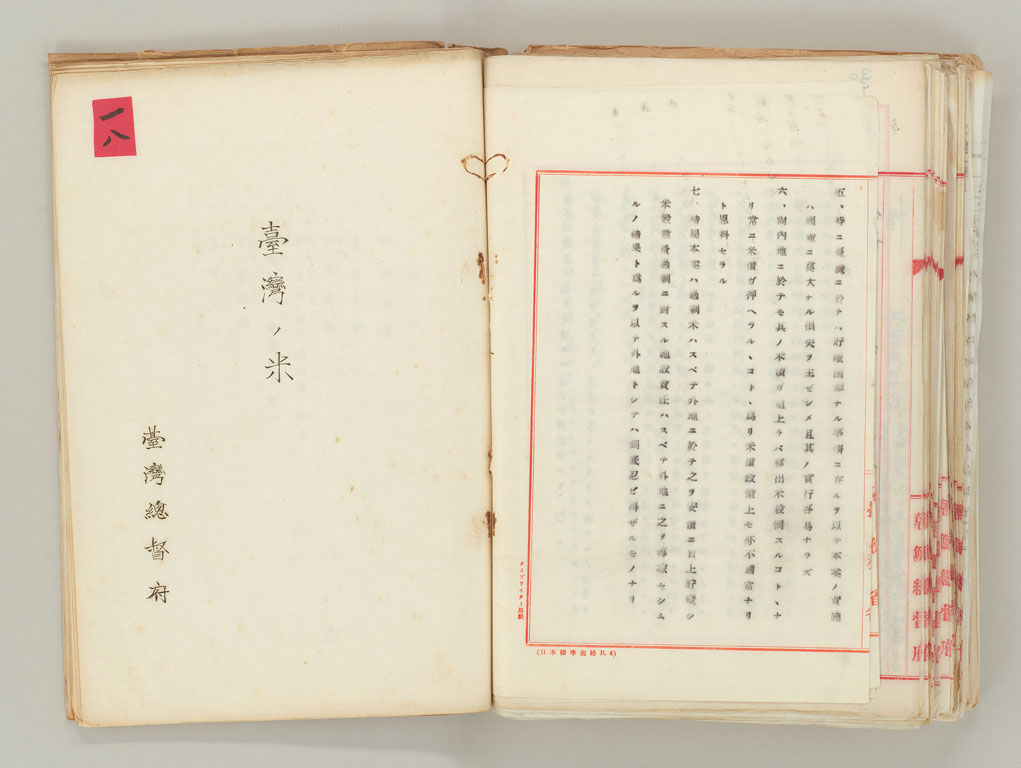 五、特ニ臺灣ニ於テハ貯藏困難ナル事情ニ在ルヲ以テ本案ノ實施
ハ國庫ニ莫大ナル損失ヲ生ゼシメ且其ノ實行容易ナラズ
六、尚內地ニ於テモ其ノ米價ガ上ラバ移出米殺倒スルコトヽナ
リ常ニ米價ガ押ヘラルヽコトヽ爲リ米價政策上モ亦不適當ナリ
ト思料セラル
七、結局本案ハ過剩米ハスベテ外地ニ於テ之ヲ安價ニ買上貯藏シ
米穀數量過剩ニ對スル施設責任ハスベテ外地ニ之ヲ嫁セシム
ルノ結果ト爲ルヲ以テ外地トシテハ到底忍ビ得ザルモノナリ
タイプライター用紙
(日本標準規格B.4)
朝鮮總督府
一八
臺灣ノ米
臺灣總督府